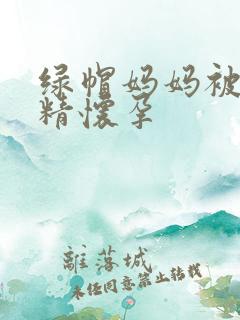 绿帽妈妈被
精懷孕
離落城
未经同意禁止转载